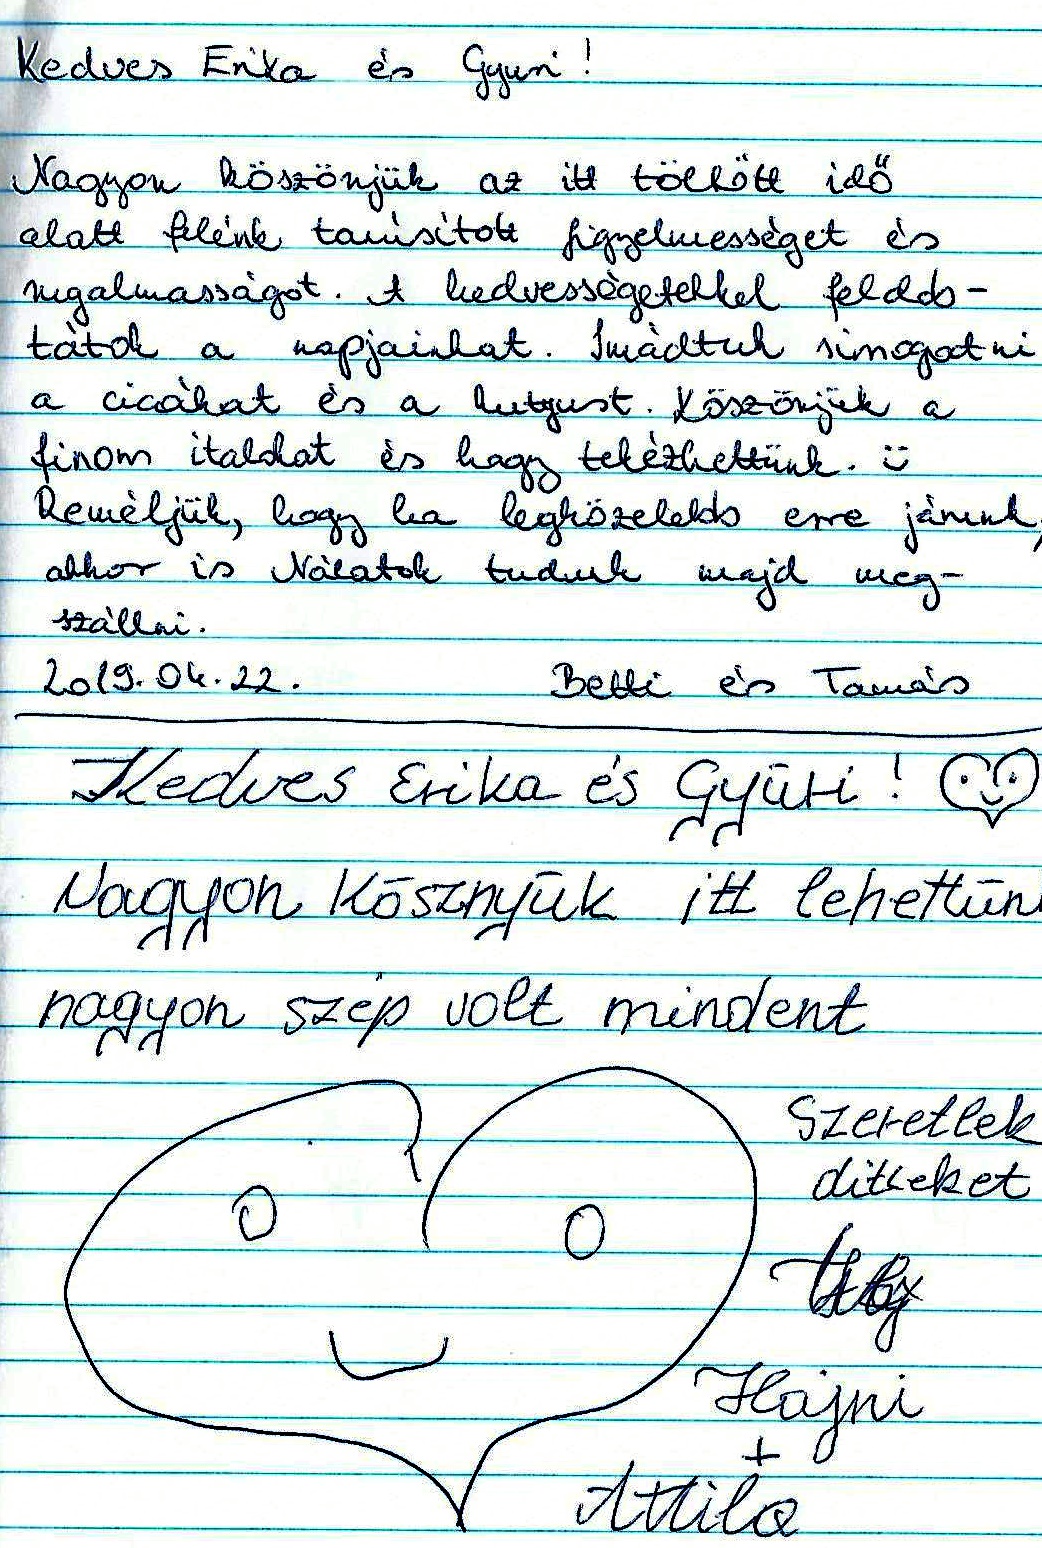 Kedves Erika és Gyuri!
Nagyon köszönjük az itt töltött idő
alatt felénk tanúsított figyelmességet és
rugalmasságot. A kedvességetekkel feldob-
tátok a napjainkat. Imádtuk simogatni
a cicákat és a kutyust. Köszönjük a
finom italokat és hogy tekézhettünk. ü
Reméljük, hogy ha legközelebb erre járunk,
akkor is Nálatok tudunk majd meg-
szállni.
2019.04.22. Betti és Tamás
Kedves Erika és Gyūri!
Nagyon Kōsznyūk itt lehettūn
nagyon szép volt mindent
Szeretlek
diteket
Hajni
+
Attila